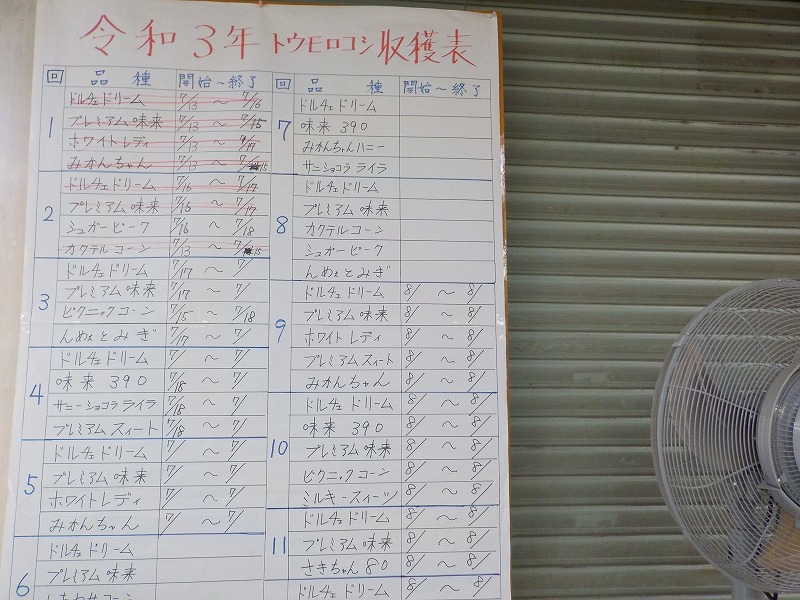 令和3年 トウモロコシ収穫表
回 品種 開始～終了
1
ドルチェドリーム 7/13 ～ 7/16
プレミアム味来 7/13 ～ 7/15
ホワイトレディ 7/13 ～ 7/17
みかんちゃん 7/13 ～ 7/15
2
ドルチェドリーム 7/16 ～ 7/17
プレミアム味来 7/16 ～ 7/17
シュガーピーク 7/16 ～ 7/18
カクテルコーン 7/13 ～ 7/15
3
ドルチェドリーム 7/17 ～ 7/
プレミアム味来 7/17 ～ 7/
ピクニックコーン 7/15 ～ 7/18
んめぇとみぎ 7/17 ～ 7/
4
ドルチェドリーム 7/ ～ 7/
味来 390 7/18 ～ 7/
サニーショコラ ライラ 7/18 ～ 7/
プレミアムスィート 7/18 ～ 7/
5
ドルチェドリーム 7/ ～ 7/
プレミアム味来 7/ ～ 7/
ホワイトレディ 7/ ～ 7/
みかんちゃん 7/ ～ 7/
6
ドルチェドリーム
プレミアム味来
回 品種 開始～終了
7
ドルチェドリーム
味来 390
みかんちゃんハニー
サニーショコラ ライラ
8
ドルチェドリーム
プレミアム味来
カクテルコーン
シュガーピーク
んめぇとみぎ
9
ドルチェドリーム 8/ ～ 8/
プレミアム味来 8/ ～ 8/
ホワイトレディ 8/ ～ 8/
プレミアムスィート 8/ ～ 8/
みかんちゃん 8/ ～ 8/
10
ドルチェドリーム 8/ ～ 8/
味来 390 8/ ～ 8/
プレミアム味来 8/ ～ 8/
ピクニックコーン 8/ ～ 8/
ミルキースィーツ 8/ ～ 8/
11
ドルチェドリーム 8/ ～ 8/
プレミアム味来 8/ ～ 8/
さきちゃん80 8/ ～ 8/
ドルチェドリーム 8/ ～ 8/